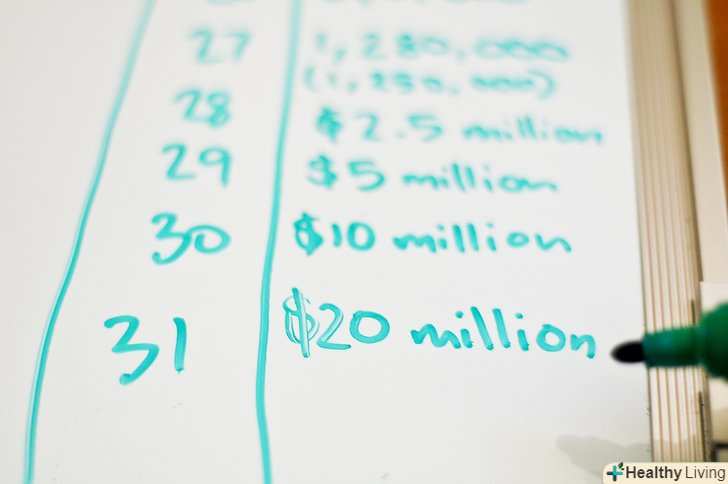 27 1,280,000
(1,250,000)
28 $2.5 million
29 $5 million
30 $10 million
31 $20 million
Healthy Living